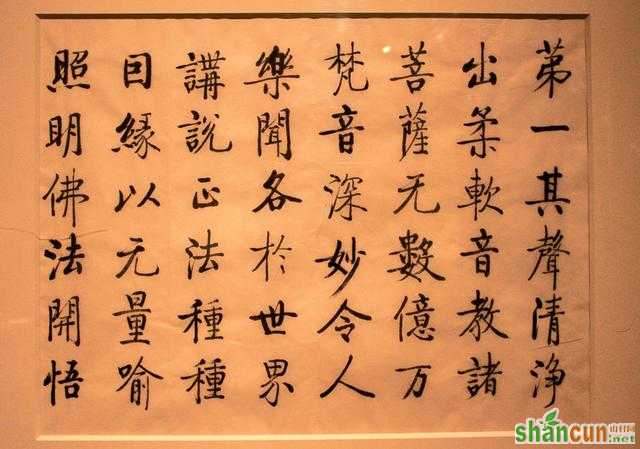 苐一其聲清淨
出柔軟音教諸
菩薩无數億万
梵音深妙令人
樂聞各於世界
講說正法種種
因緣以无量喻
照明佛法開悟
shancun
山村网
.net